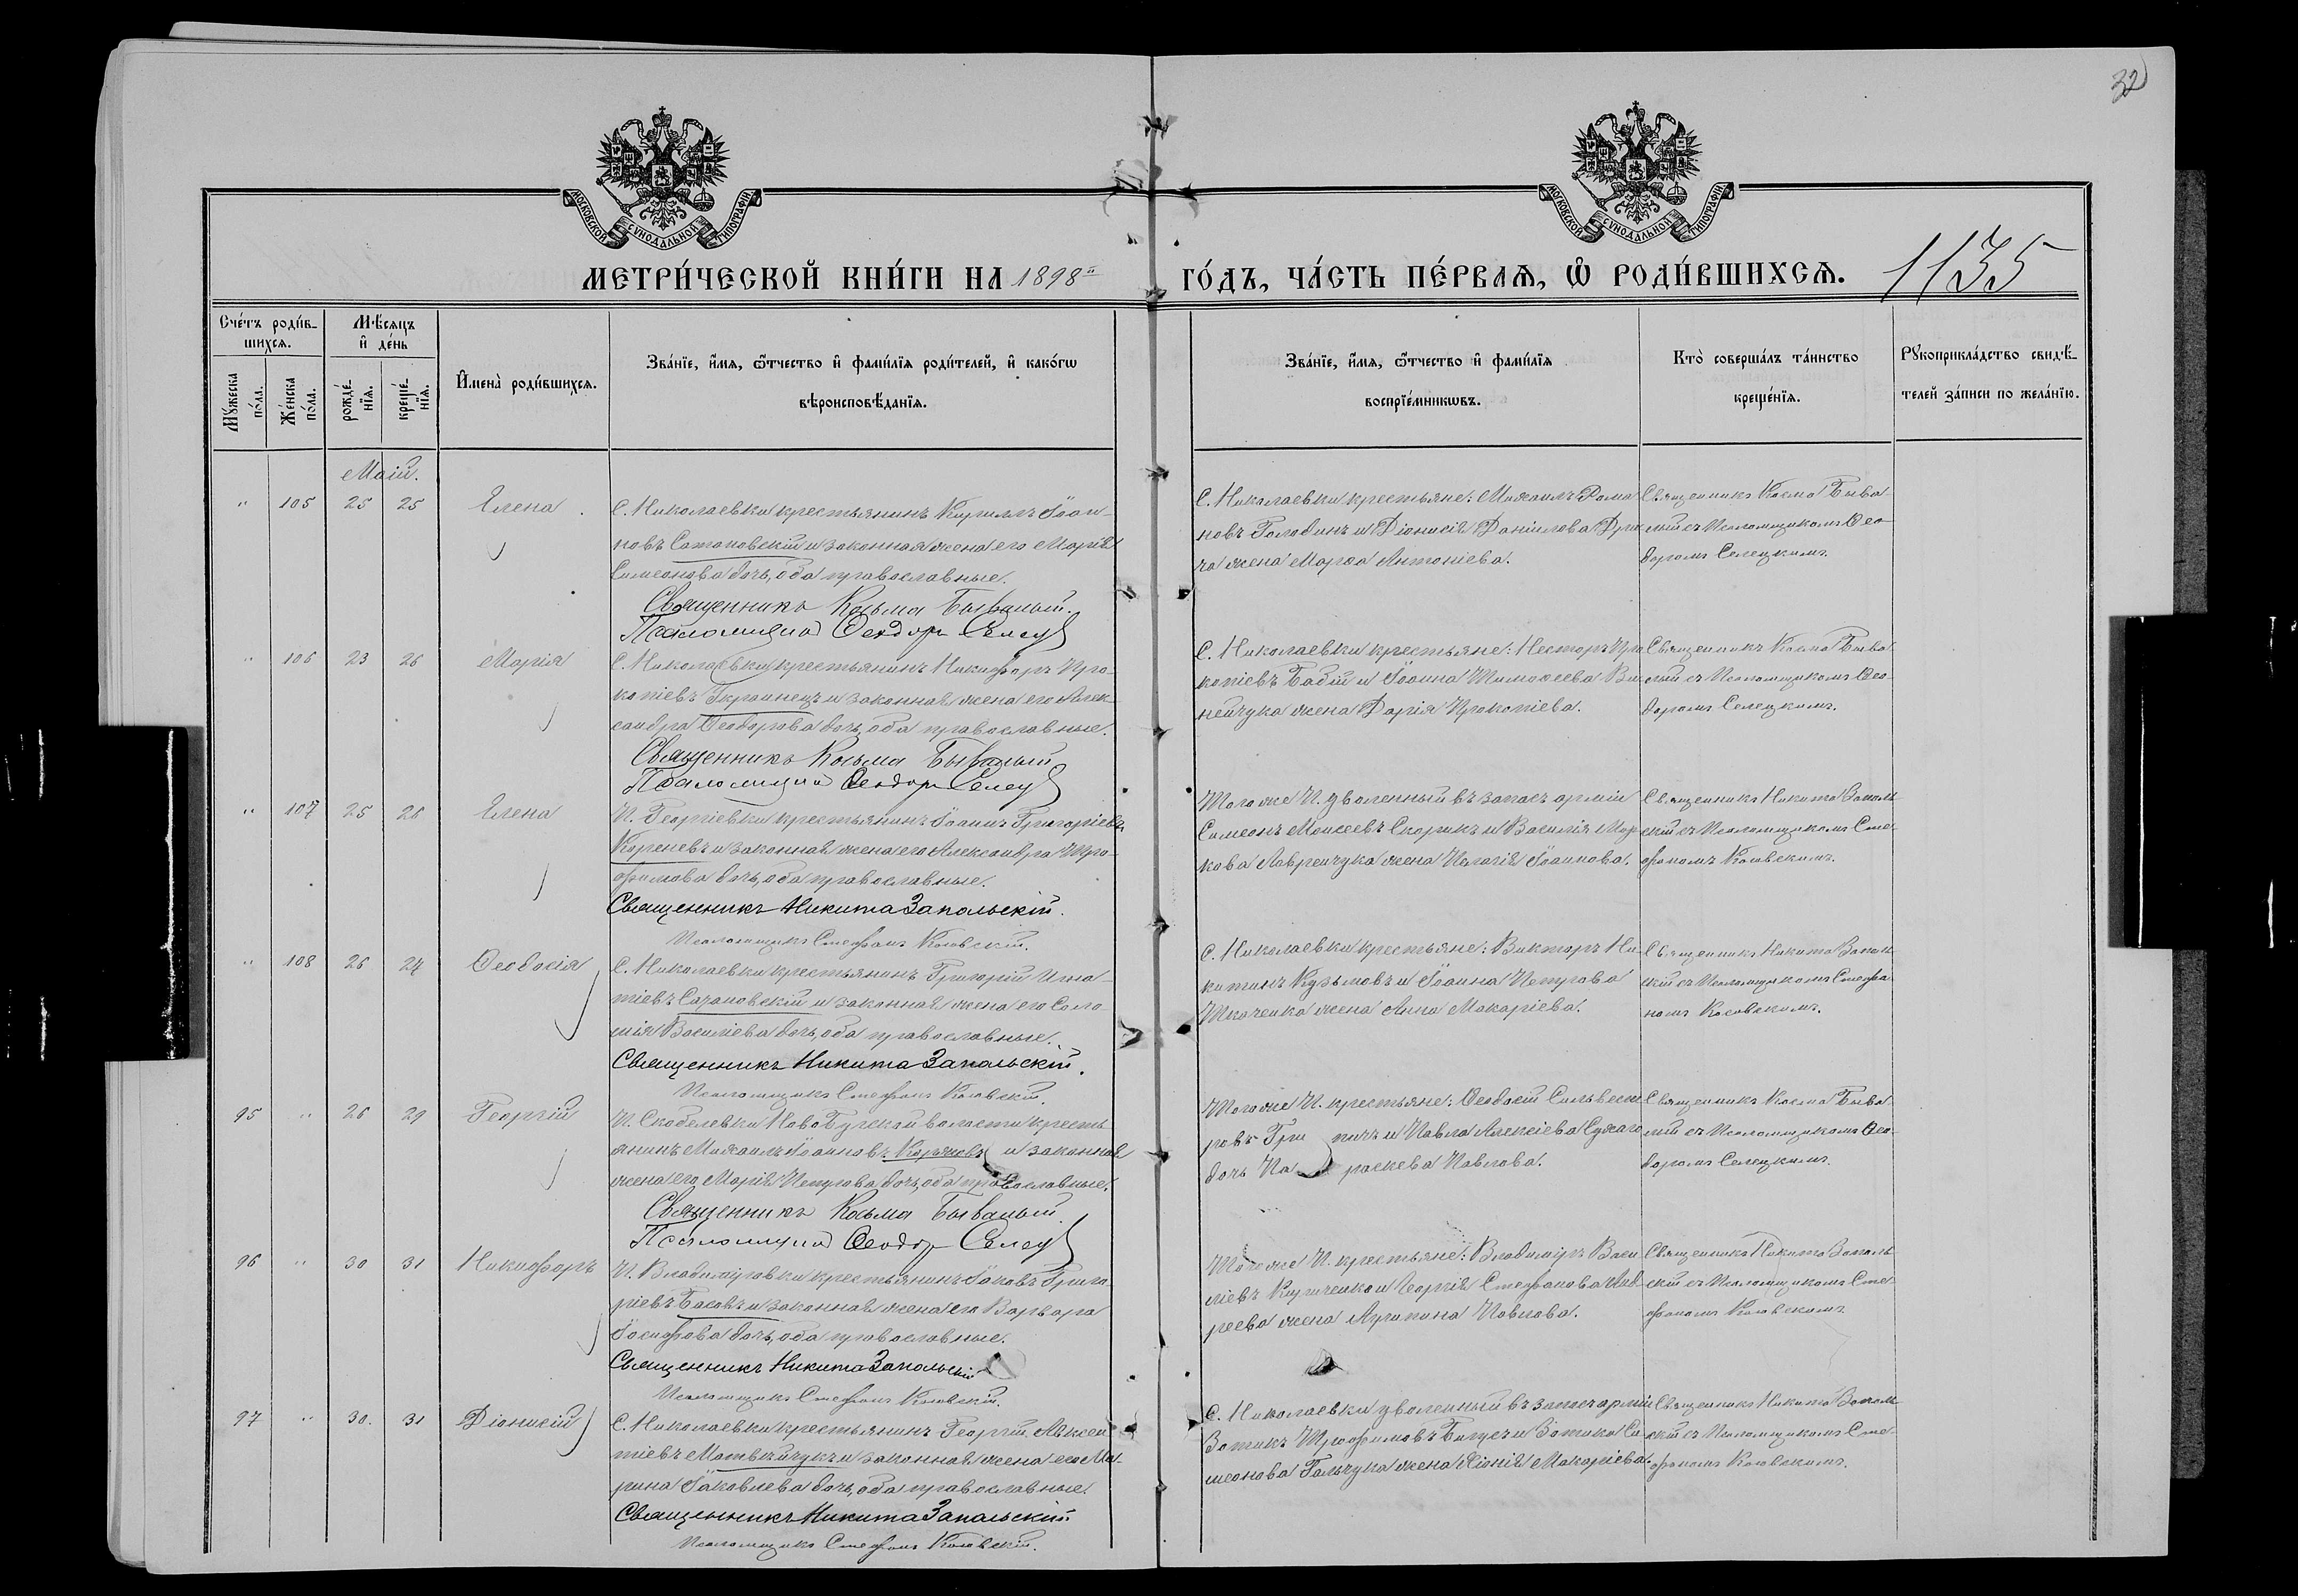 32
МОСКОВСКОЙ СУНОДАЛЬНОЙ ТИПОГРАФІИ
МОСКОВСКОЙ СУНОДАЛЬНОЙ ТИПОГРАФІИ
МЕТРИ́ЧЕСКОЙ КНИ́ГИ НА 1898й ГО́ДЪ, ЧА́СТЬ ПЕ́РВАѦ, Ѿ РОДИ́ВШИХСѦ. 1135
Сче́тъ роди́вшихсѧ.
Мꙋ́жеска по́ла.
Же́нска по́ла.
Мѣ́сѧцъ и҆ де́нь
рожде́нїѧ.
креще́нїѧ.
И҆мена̀ роди́вшихсѧ.
Зва́нїе, и҆́мѧ, ѻ҆́тчество и҆ фами́лїѧ роди́телей, и҆ како́гѡ
вѣроисповѣ́данїѧ.
Зва́нїе, и҆́мѧ, ѻ҆́тчество и҆ фами́лїѧ
воспрїе́мникѡвъ.
Кто̀ соверша́лъ та́инство
креще́нїѧ.
Рꙋкоприкла́дство свидѣ́-
телей за́писи по жела́нїю.
Маій.
" 105 25 25 Елена.
С. Николаевки крестьянинъ Кириллъ Іоан-
новъ Сатановскій и законная жена его Марія
Симеонова дочь, оба православные.
Священникъ Косьма Бывалый.
Псаломщикъ Ѳеодоръ Селец
С. Николаевки крестьяне: Михаилъ Рома
новъ Голодинъ и Діонисія Даніилова Дра
ча жена Марѳа Антоніева.
Священникъ Косма Быва
лый съ Псаломщикомъ Ѳео
доромъ Селецкимъ.
" 106 23 26 Марія
С. Николаевки крестьянинъ Никифоръ Про-
копіевъ Украинецъ и законная жена его Алек-
сандра Ѳеодорова дочь, оба православные.
Священникъ Косьма Бывалый
Псаломщикъ Ѳеодоръ Селец
С. Николаевки крестьяне: Несторъ Про
копіевъ Бабій и Іоанна Тимоѳеева Ви
нейчука жена Дарія Прокопіева.
Священникъ Косма Быва
лый съ Псаломщикомъ Ѳео-
доромъ Селецкимъ.
" 107 25 26 Елена
П. Георгіевки крестьянинъ Іоаннъ Григоріевъ
Кореневъ и законная жена его Александра Тро-
фимова дочь, оба православные.
Священникъ Никита Запольскій.
Псаломщикъ Стефанъ Косовскій.
Того же П. уволенный въ запасъ арміи
Симеонъ Моисеевъ Скорикъ и Василія Мар
кова Лавренчука жена Пелагія Іоаннова.
Священникъ Никита Заполь
скій съ Псаломщикомъ Сте-
фаномъ Косовскимъ.
" 108 26 24 Ѳеодосія
С. Николаевки крестьянинъ Григорій Игна-
тіевъ Сачановскій и законная жена его Соло-
мія Василіева дочь, оба православные.
Священникъ Никита Запольскій.
Псаломщикъ Стефанъ Косовскій.
С. Николаевки крестьяне: Викторъ Ни-
китинъ Кузьмовъ и Іоанна Петрова
Ткаченка жена Анна Макаріева.
Священникъ Никита Заполь-
скій съ Псаломщикомъ Стефа-
номъ Косовскимъ.
95 " 26 29 Георгій
П. Скобелевки НовоБугской волости кресть
янинъ Михаилъ Іоанновъ Коржевъ и законная
жена его Марія Петрова дочь, оба православные.
Священникъ Косьма Бывалый.
Псаломщикъ Ѳеодоръ Селец
Того же П. крестьяне: Ѳеодосій Сильвест
ровъ Гри и Павла Алексіева
дочь Параскева Павлова.
Священникъ Косма Быва
лый съ Псаломщикомъ Ѳео-
доромъ Селецкимъ.
96 " 30 31 Никифоръ
П. Владиміровки крестьянинъ Іаковъ Григо
ріевъ Басовъ и законная жена его Варвара
Іосифова дочь, оба православные.
Священникъ Никита Запольскій
Псаломщикъ Стефанъ Косовскій.
Того же П. крестьяне: Владиміръ Васи
ліевъ Кириченко и Георгія Стефанова Анд
реева жена Агрипина Павлова.
Священникъ Никита Заполь
скій съ Псаломщикомъ Сте
фаномъ Косовскимъ.
97 " 30. 31 Діонисій
С. Николаевки крестьянинъ Георгій Авксен
тіевъ Матвѣйчукъ и законная жена его Ма-
рина Іаковлева дочь, оба православные.
Священникъ Никита Запольскій
Псаломщикъ Стефанъ Косовскій.
С. Николаевки уволенный въ запасъ арміи
Зотикъ Трофимовъ и Зотика Си
меонова Гальчука жена Макаріева.
Священникъ Никита Заполь
скій съ Псаломщикомъ Сте-
фаномъ Косовскимъ.